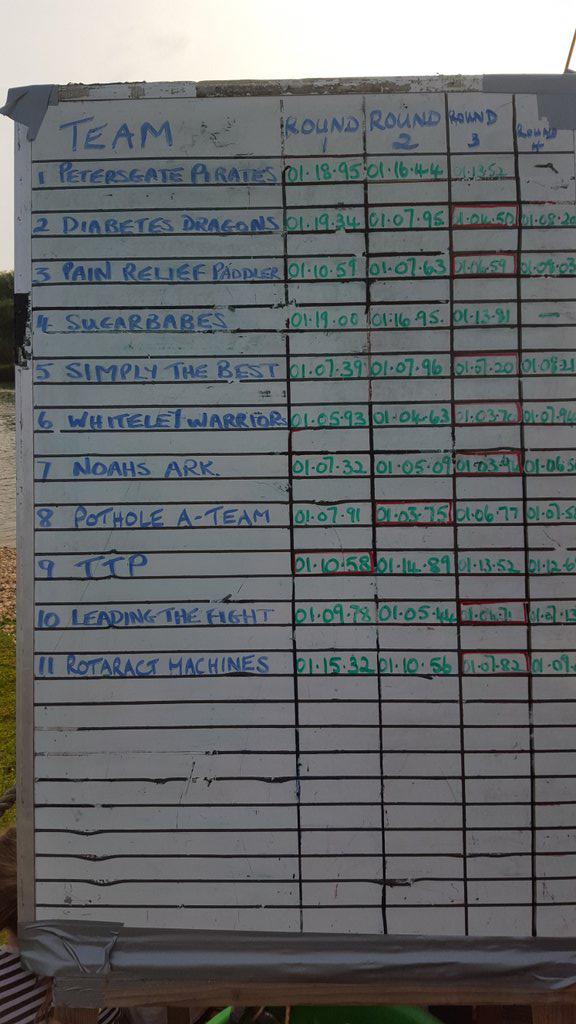 TEAM ROUND 1 ROUND 2 ROUND 3 ROUND 4
1 PETERSGATE PIRATES 01.18.95 01.16.44 01.13.52 -
2 DIABETES DRAGONS 01.19.34 01.07.95 01.06.50 01.08.20
3 PAIN RELIEF PADDLER 01.10.59 01.07.63 01.06.59 01.09.03
4 SUGARBABES 01.19.00 01.16.95 01.13.81 -
5 SIMPLY THE BEST 01.07.39 01.07.96 01.07.20 01.08.21
6 WHITELEY WARRIORS 01.05.93 01.04.63 01.03.70 01.07.94
7 NOAHS ARK 01.07.32 01.05.09 01.06.5
8 POTHOLE A-TEAM 01.07.91 01.03.75 01.06.77 01.07.5
9 TTP 01.10.58 01.14.89 01.13.52 01.12.6
10 LEADING THE FIGHT 01.09.78 01.05.44 01.07.13
11 ROTARACT MACHINES 01.15.32 01.10.56 01.07.82 01.09.